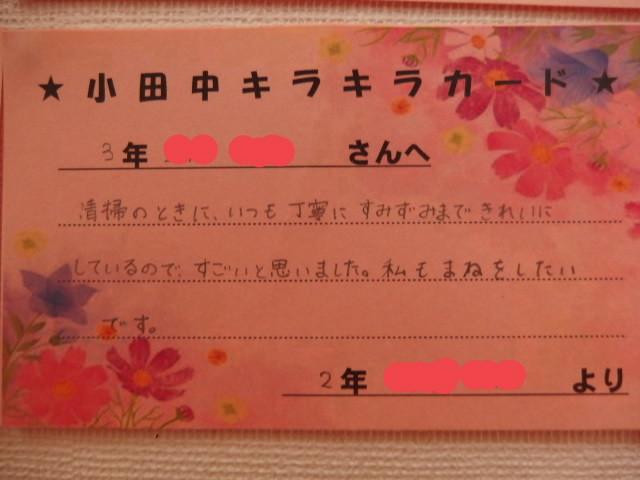 ★小田中キラキラカード★
3年 さんへ
清掃のときに、いつも丁寧にすみずみまできれいに
しているので、すごいと思いました。私もまねをしたい
です。
2年 より